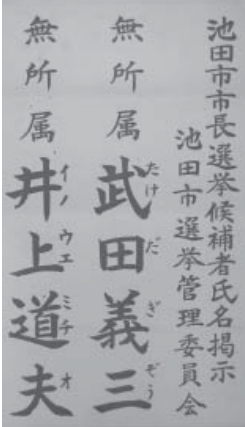 池田市市長選挙候補者氏名掲示
池田市選挙管理委員会
無所属 武田義三
たけ だ ぎ ぞう
無所属 井上道夫
イノ ウエ ミチ オ